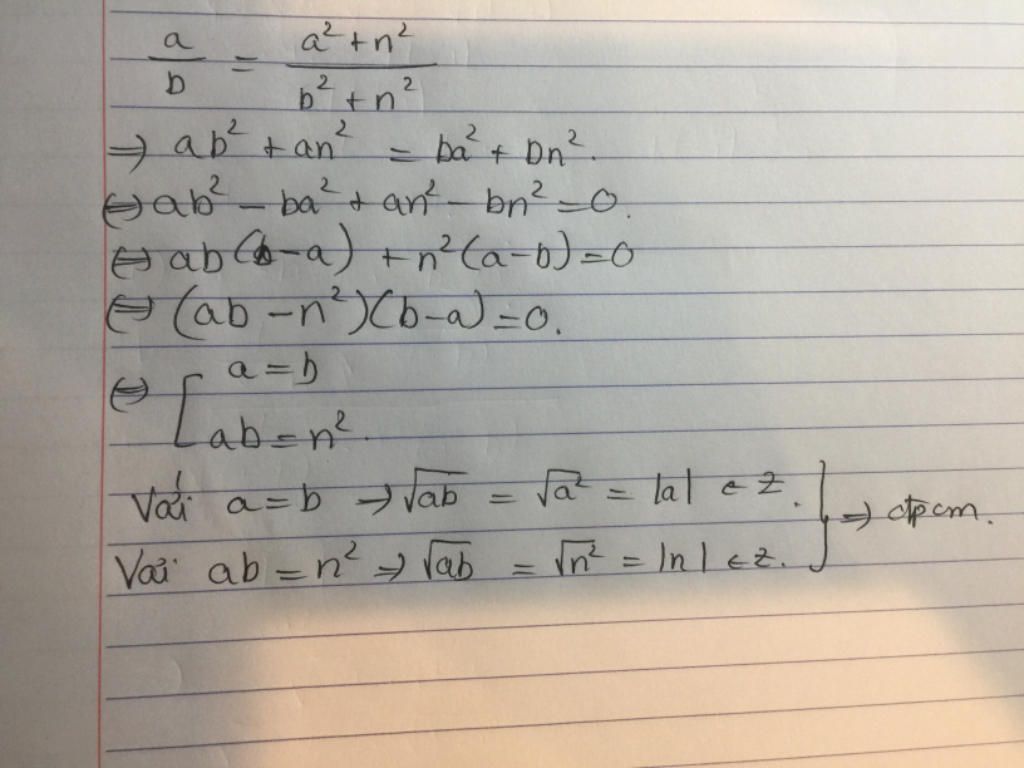 a/b = (a² + n²)/(b² + n²)
⇒ ab² + an² = ba² + bn².
⇔ ab² − ba² + an² − bn² = 0.
⇔ ab(b−a) + n²(a−b) = 0
⇔ (ab − n²)(b−a) = 0.
⇔ [ a = b
ab = n².
Với a = b → √ab = √a² = |a| ∈ Z. } ⇒ đpcm.
Với ab = n² → √ab = √n² = |n| ∈ Z.